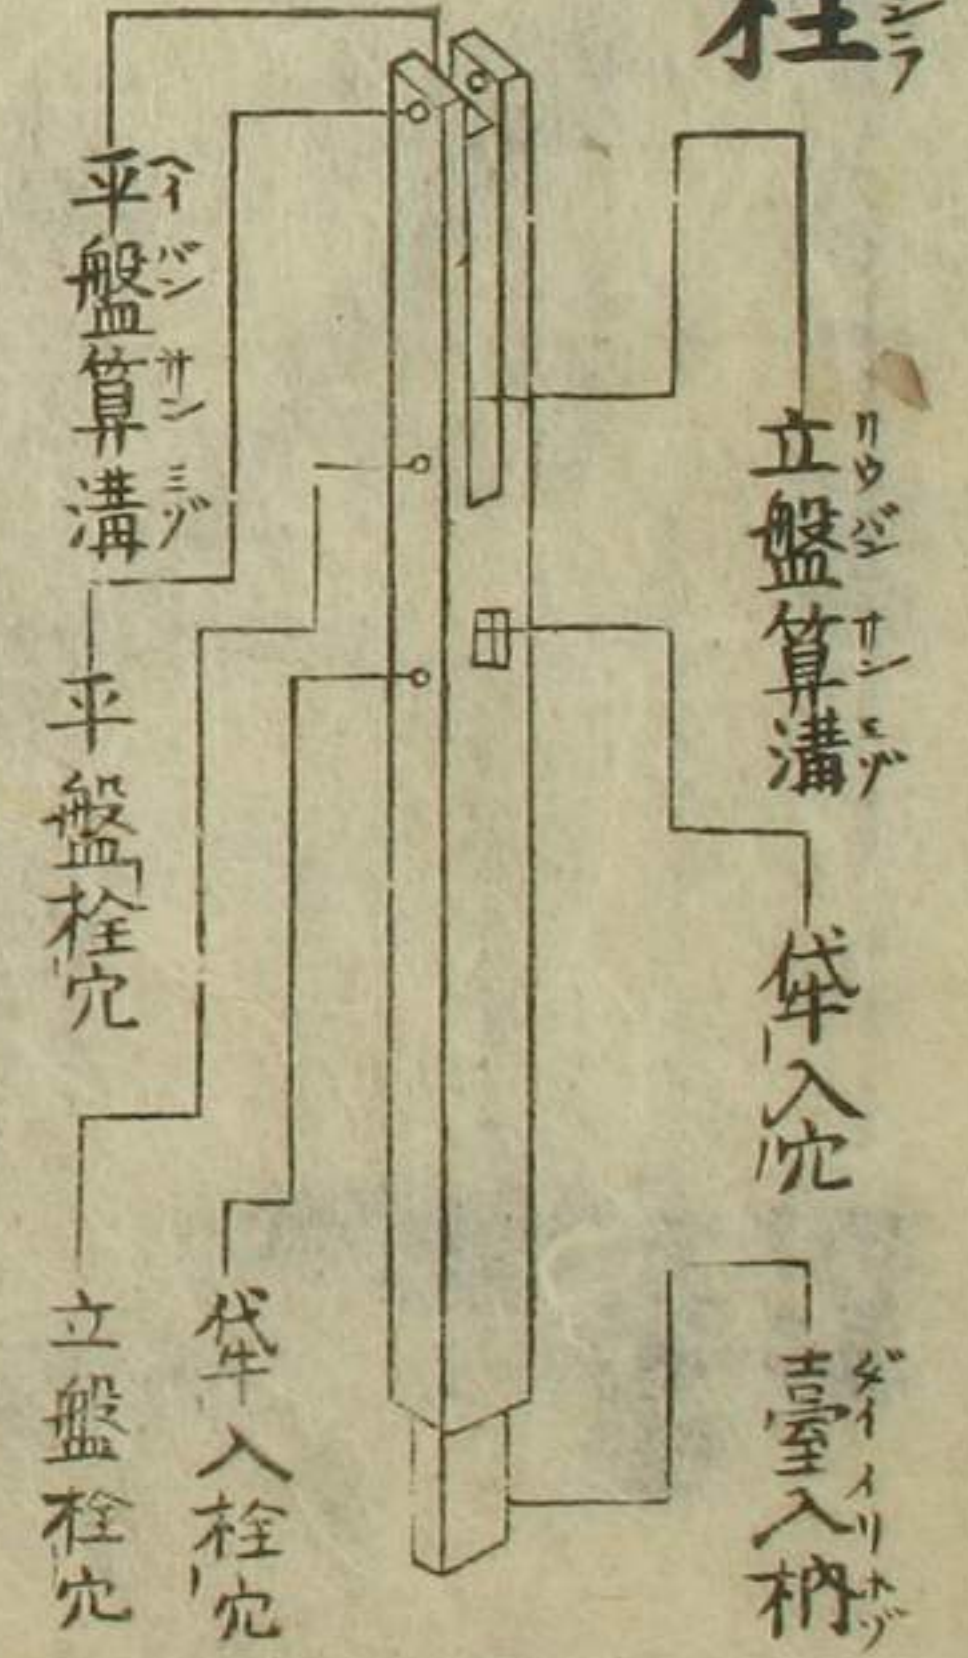 柱
シラ
立盤算溝
リウバンサンミゾ
牮入穴
臺入枘
ダイイリホゾ
平盤算溝
ヘイバンサンミゾ
平盤栓穴
牮入栓穴
立盤栓穴